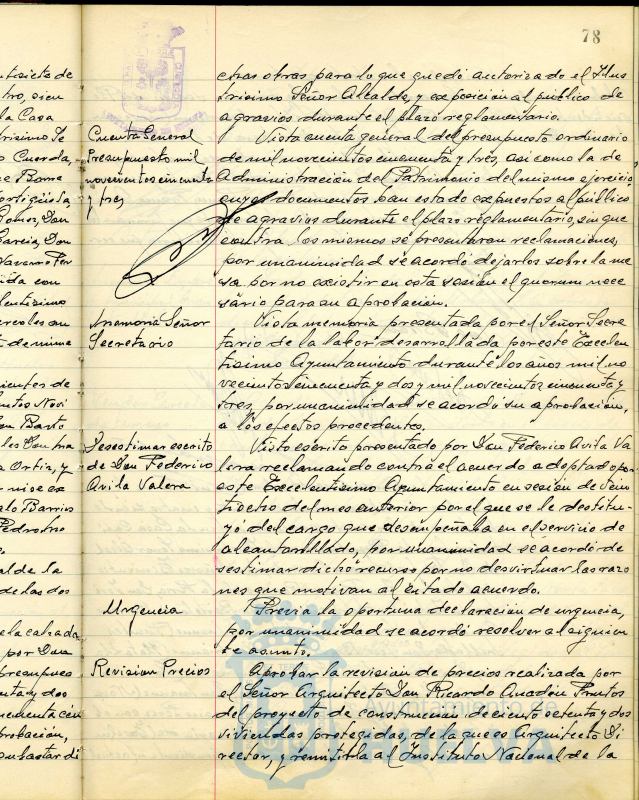 78
utisiete de
tro, sien
la Casa
trisimo Se
o Cuerda,
Barre
ortigüela
Gomez, Don
Garcia, Don
Navarro Per
ida con
lentisimo
ercoles en
de nueve
ientes de
Novi
Barto
les Don Fra
Ortiz, y
alo Barrios
Pedro
alde la
de las dos
e la calzada
por Don
presupues
nta y dos
probación,
subastar di
Cuenta General
Presupuesto mil
novecientos cincuenta
y tres
Memoria Señor
Secretario
Desestimar escrito
de Don Federico
Avila Valera
Urgencia
Revision Precios
chas obras para lo que quedó autorizado el Ilus
trisimo Señor Alcalde, y exposicion al público de
agravios durante el plazo reglamentario.
Vista cuenta general del presupuesto ordinario
de mil novecientos cincuenta y tres, asi como la de
Administración del Patrimonio del mismo ejercicio
cuyos documentos han estado expuestos al público
de agravios durante el plazo reglamentario, sin que
contra los mismos se presentaran reclamaciones,
por unanimidad se acordó dejarlos sobre la me
sa por no existir en esta sesión el quorum nece
sario para su aprobación.
Vista memoria presentada por el Señor Secre
tario de la labor desarrollada por este Excelen
tisimo Ayuntamiento durante los años mil no
vecientos cincuenta y dos y mil novecientos cincuenta y
tres, por unanimidad se acordó su aprobación,
a los efectos procedentes.
Visto escrito presentado por Don Federico Avila Va
lera reclamando contra el acuerdo adoptado por
este Excelentisimo Ayuntamiento en sesión de vein
tiocho del mes anterior por el que se le destitu
yó del cargo que desempeñaba en el servicio de
alcantarillado, por unanimidad se acordó de
sestimar dicho recurso por no desvirtuar las razo
nes que motivan al citado acuerdo.
Previa la oportuna declaracion de urgencia,
por unanimidad se acordó resolver el siguien
te asunto.
Aprobar la revisión de precios realizada por
el Señor Arquitecto Don Ricardo Anadón Frutos
del proyecto de construccion de ciento setenta y dos
viviendas protegidas, de la que es Arquitecto Di
rector, y remitirla al Instituto Nacional de la
Ayuntamiento de